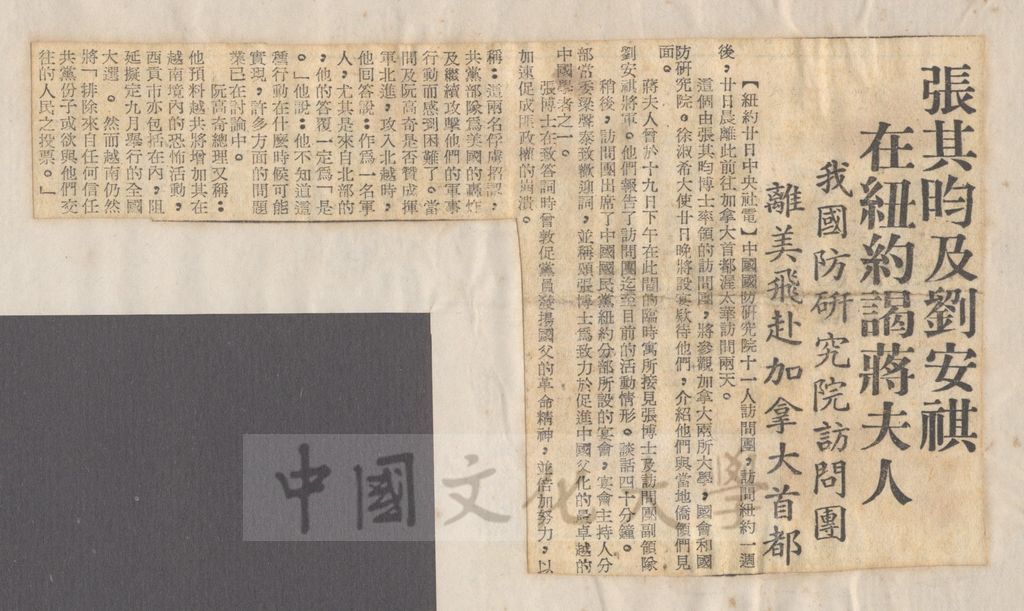 張其昀及劉安祺
在紐約謁蔣夫人
我國防硏究院訪問團
離美飛赴加拿大首都
【紐約廿日中央社電】中國國防硏究院十一人訪問團，訪問紐約一週
後，廿日晨離此前往加拿大首都渥太華訪問兩天。
這個由張其昀博士率領的訪問團，將參觀加拿大兩所大學，國會和國
防硏究院。徐淑希大使廿日晚將設宴欵待他們，介紹他們與當地僑領們見
面。
蔣夫人曾於十九日下午在此間的臨時寓所接見張博士及訪問團副領隊
劉安祺將軍。他們報告了訪問團迄至目前的活動情形。談話四十分鐘。
稍後，訪問團出席了中國國民黨紐約分部所設的宴會，宴會主持人分
部常委梁聲泰致歡迎詞，並稱頌張博士爲致力於促進中國文化的最卓越的
中國學者之一。
張博士在致答詞時曾敦促黨員發揚國父的革命精神，並倍加努力，以
加速促成匪政權的崩潰。
稱：這兩名俘虜招認，
共黨部隊爲美國的轟炸
及繼續攻擊他們的軍事
行動而感到困難了。當
問及阮高奇是否贊成揮
軍北進，攻入北越時，
他回答說：作爲一名軍
人，尤其是來自北部的
，他的答覆一定爲「是
。」他說：他不知道這
種行動在什麽時候可能
實現，許多方面的問題
業已在討論中。
阮高奇總理又稱：
他預料越共將增加其在
越南境內的恐怖活動，
西貢市亦包括在內，阻
延擬定九月舉行的全國
大選。然而越南仍然
將「排除來自任何信任
共黨份子或欲與他們交
往的人民之投票。」
中國文化大學